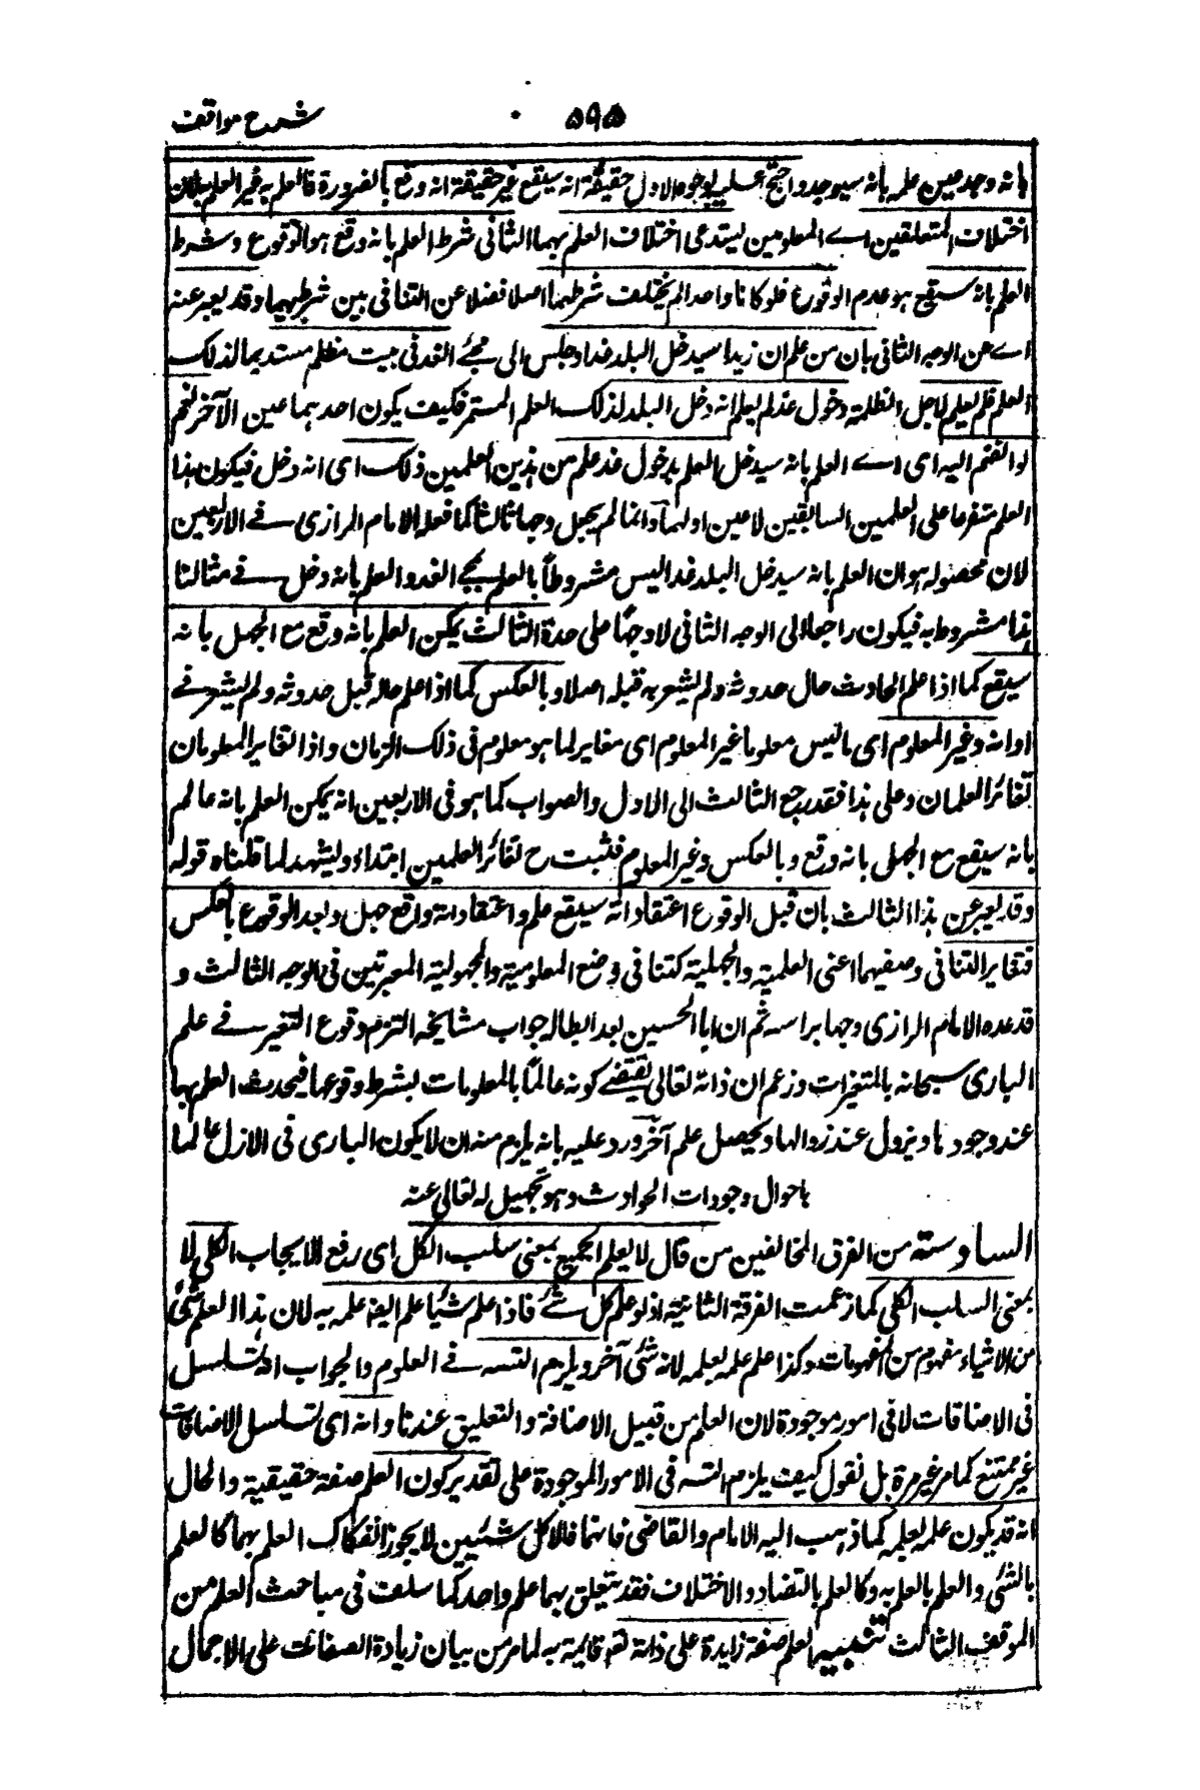 شرح مواقف
۵۹۵
بانه وجد عين علمه بانه سيوجد واحتج عليه بوجوه الاول حقيقة انه سيقع غير حقيقة انه وقع بالضرورة فالعلم به غير العلم به لان
اختلاف المتعلقين اے المعلومين يستدعى اختلاف العلم بهما الثانى شرط العلم بانه وقع هو الوقوع وشرط
العلم بانه سيقع هو عدم الوقوع فلو كانا واحدا لم يختلف شرطهما اصلا فضلا عن التنافى بين شرطيهما وقد يعبر عنه
اے عن الوجه الثانى بان من علم ان زيدا سيدخل البلد غدا وجلس الى مجئ الغد فى بيت مظلم مستديما لذلك
العلم فلم يعلم لاجل الظلمة دخول غد لم يعلم انه دخل البلد لذلك العلم المستمر فكيف يكون احدهما عين الآخر نعم
لو انضم اليه اى اے العلم بانه سيدخل العلم بدخول غد علم من هذين العلمين ذلك اى انه دخل فيكون هذا
العلم متفرعا على العلمين السابقين لا عين اولهما وانما لم يجعل وجها ثالثا كما فعله الامام الرازى فے الاربعين
لان محصوله هو ان العلم بانه سيدخل البلد غدا ليس مشروطا بالعلم بمجئ الغد والعلم بانه دخل فے مثالنا
هذا مشروط به فيكون راجعا الى الوجه الثانى لا وجها على حدة الثالث يمكن العلم بانه وقع مع الجهل بانه
سيقع كما اذا علم الحادث حال حدوثه ولم يشعر به قبله اصلا وبالعكس كما اذا علم حاله قبل حدوثه ولم يشعر فے
اوانه وغير المعلوم اى ما ليس معلوما غير المعلوم اى مغاير لما هو معلوم فى ذلك الزمان واذا تغاير المعلومان
تغائر العلمان وعلى هذا فقد رجع الثالث الى الاول والصواب كما هو فى الاربعين انه يمكن العلم بانه عالم
بانه سيقع مع الجهل بانه وقع وبالعكس وغير المعلوم فثبت ح تغائر العلمين ابتداء ويشهد لما قلناه قوله
وقد يعبر عن هذا الثالث بان قبل الوقوع اعتقاد انه سيقع علم واعتقاد انه واقع جهل وبعد الوقوع بالعكس
فتغاير التنافى وصفيهما اعنى العلمية والجهلية كتنافى وضع المعلومية والمجهولية المعبرتين فى الوجه الثالث و
قد عده الامام الرازى وجها براسه ثم ان ابا الحسين بعد ابطاله جواب مشايخه التزم وقوع التغير فے علم
البارى سبحانه بالمتغيرات وزعم ان ذاته تعالى يقتضے كونه عالما بالمعلومات بشرط وقوعها فيحدث العلم بها
عند وجودها ويزول عند زوالها ويحصل علم آخر ورد عليه بانه يلزم منه ان لا يكون البارى فى الازل عالما
باحوال وجودات الحوادث وهو تجهيل له تعالى عنه
السادسة من الفرق المخالفين من قال لا يعلم الجميع بمعنى سلب الكل اى رفع الايجاب الكلى لا
بمعنى السلب الكلى كما زعمت الفرقة الثانية اذ لو علم كل شئ فاذا علم شيا علم ايضا علمه به لان هذا العلم شئ
من الاشياء مفهوم من المفهومات وكذا علم علمه بعلمه لانه شئ آخر ويلزم التسه فے العلوم والجواب انه تسلسل
فى الاضافات لا فى امور موجودة لان العلم من قبيل الاضافة والتعليق عندنا وانه اى تسلسل الاضافات
غير ممتنع كما مر غير مرة بل نقول كيف يلزم التسه فى الامور الموجودة على تقدير كون العلم صفة حقيقية والحال
انه قد يكون علمه بعلمه كما ذهب اليه الامام والقاضى فانهما قالا كل شيئين لا يجوز انفكاك العلم بهما كالعلم
بالشئ والعلم بالعلم به وكالعلم بالتضاد والاختلاف فقد يتعلق بهما علم واحد كما سلف فى مباحث العلم من
الموقف الثالث تنبيه العلم صفة زايدة على ذاته تعه قايمة به لما مر من بيان زيادة الصفات على الاجمال